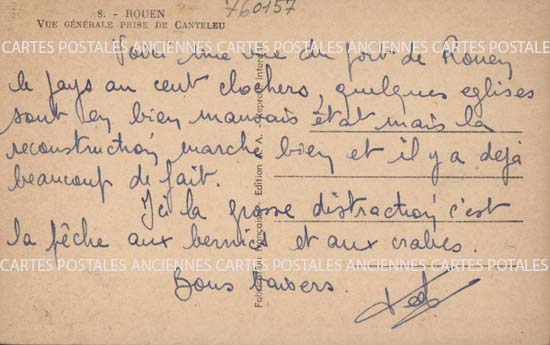 8. - ROUEN
VUE GÉNÉRALE PRISE DE CANTELEU
760157
Voici une vue du port de Rouen
le pays au cent clochers, quelques eglises
sont en bien mauvais état mais la
reconstruction marche bien et il y a dejà
beaucoup de fait.
Ici la grosse distraction c'est
la pêche aux bernics et aux crabes.
Bons baisers.
Fabrication française - Edition P. A. - Reprod. interdite
CARTES POSTALES ANCIENNES CARTES POSTALES ANCIENNES CARTES POSTALES
CARTES POSTALES ANCIENNES CARTES POSTALES ANCIENNES CARTES POSTALES
CARTES POSTALES ANCIENNES CARTES POSTALES ANCIENNES CARTES POSTALES